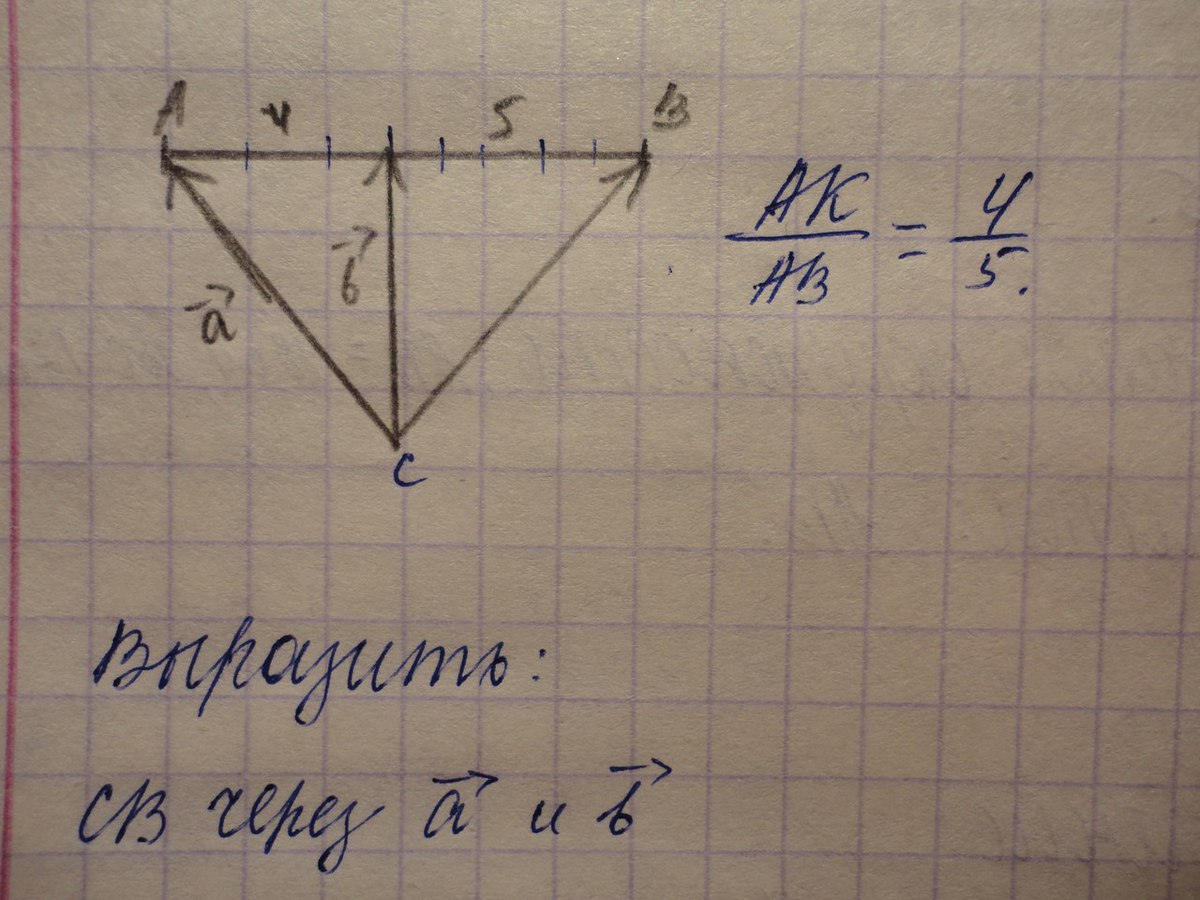 A 4 5 B
AK/AB = 4/5.
a⃗ b⃗
C
Выразить:
CB через a⃗ и b⃗